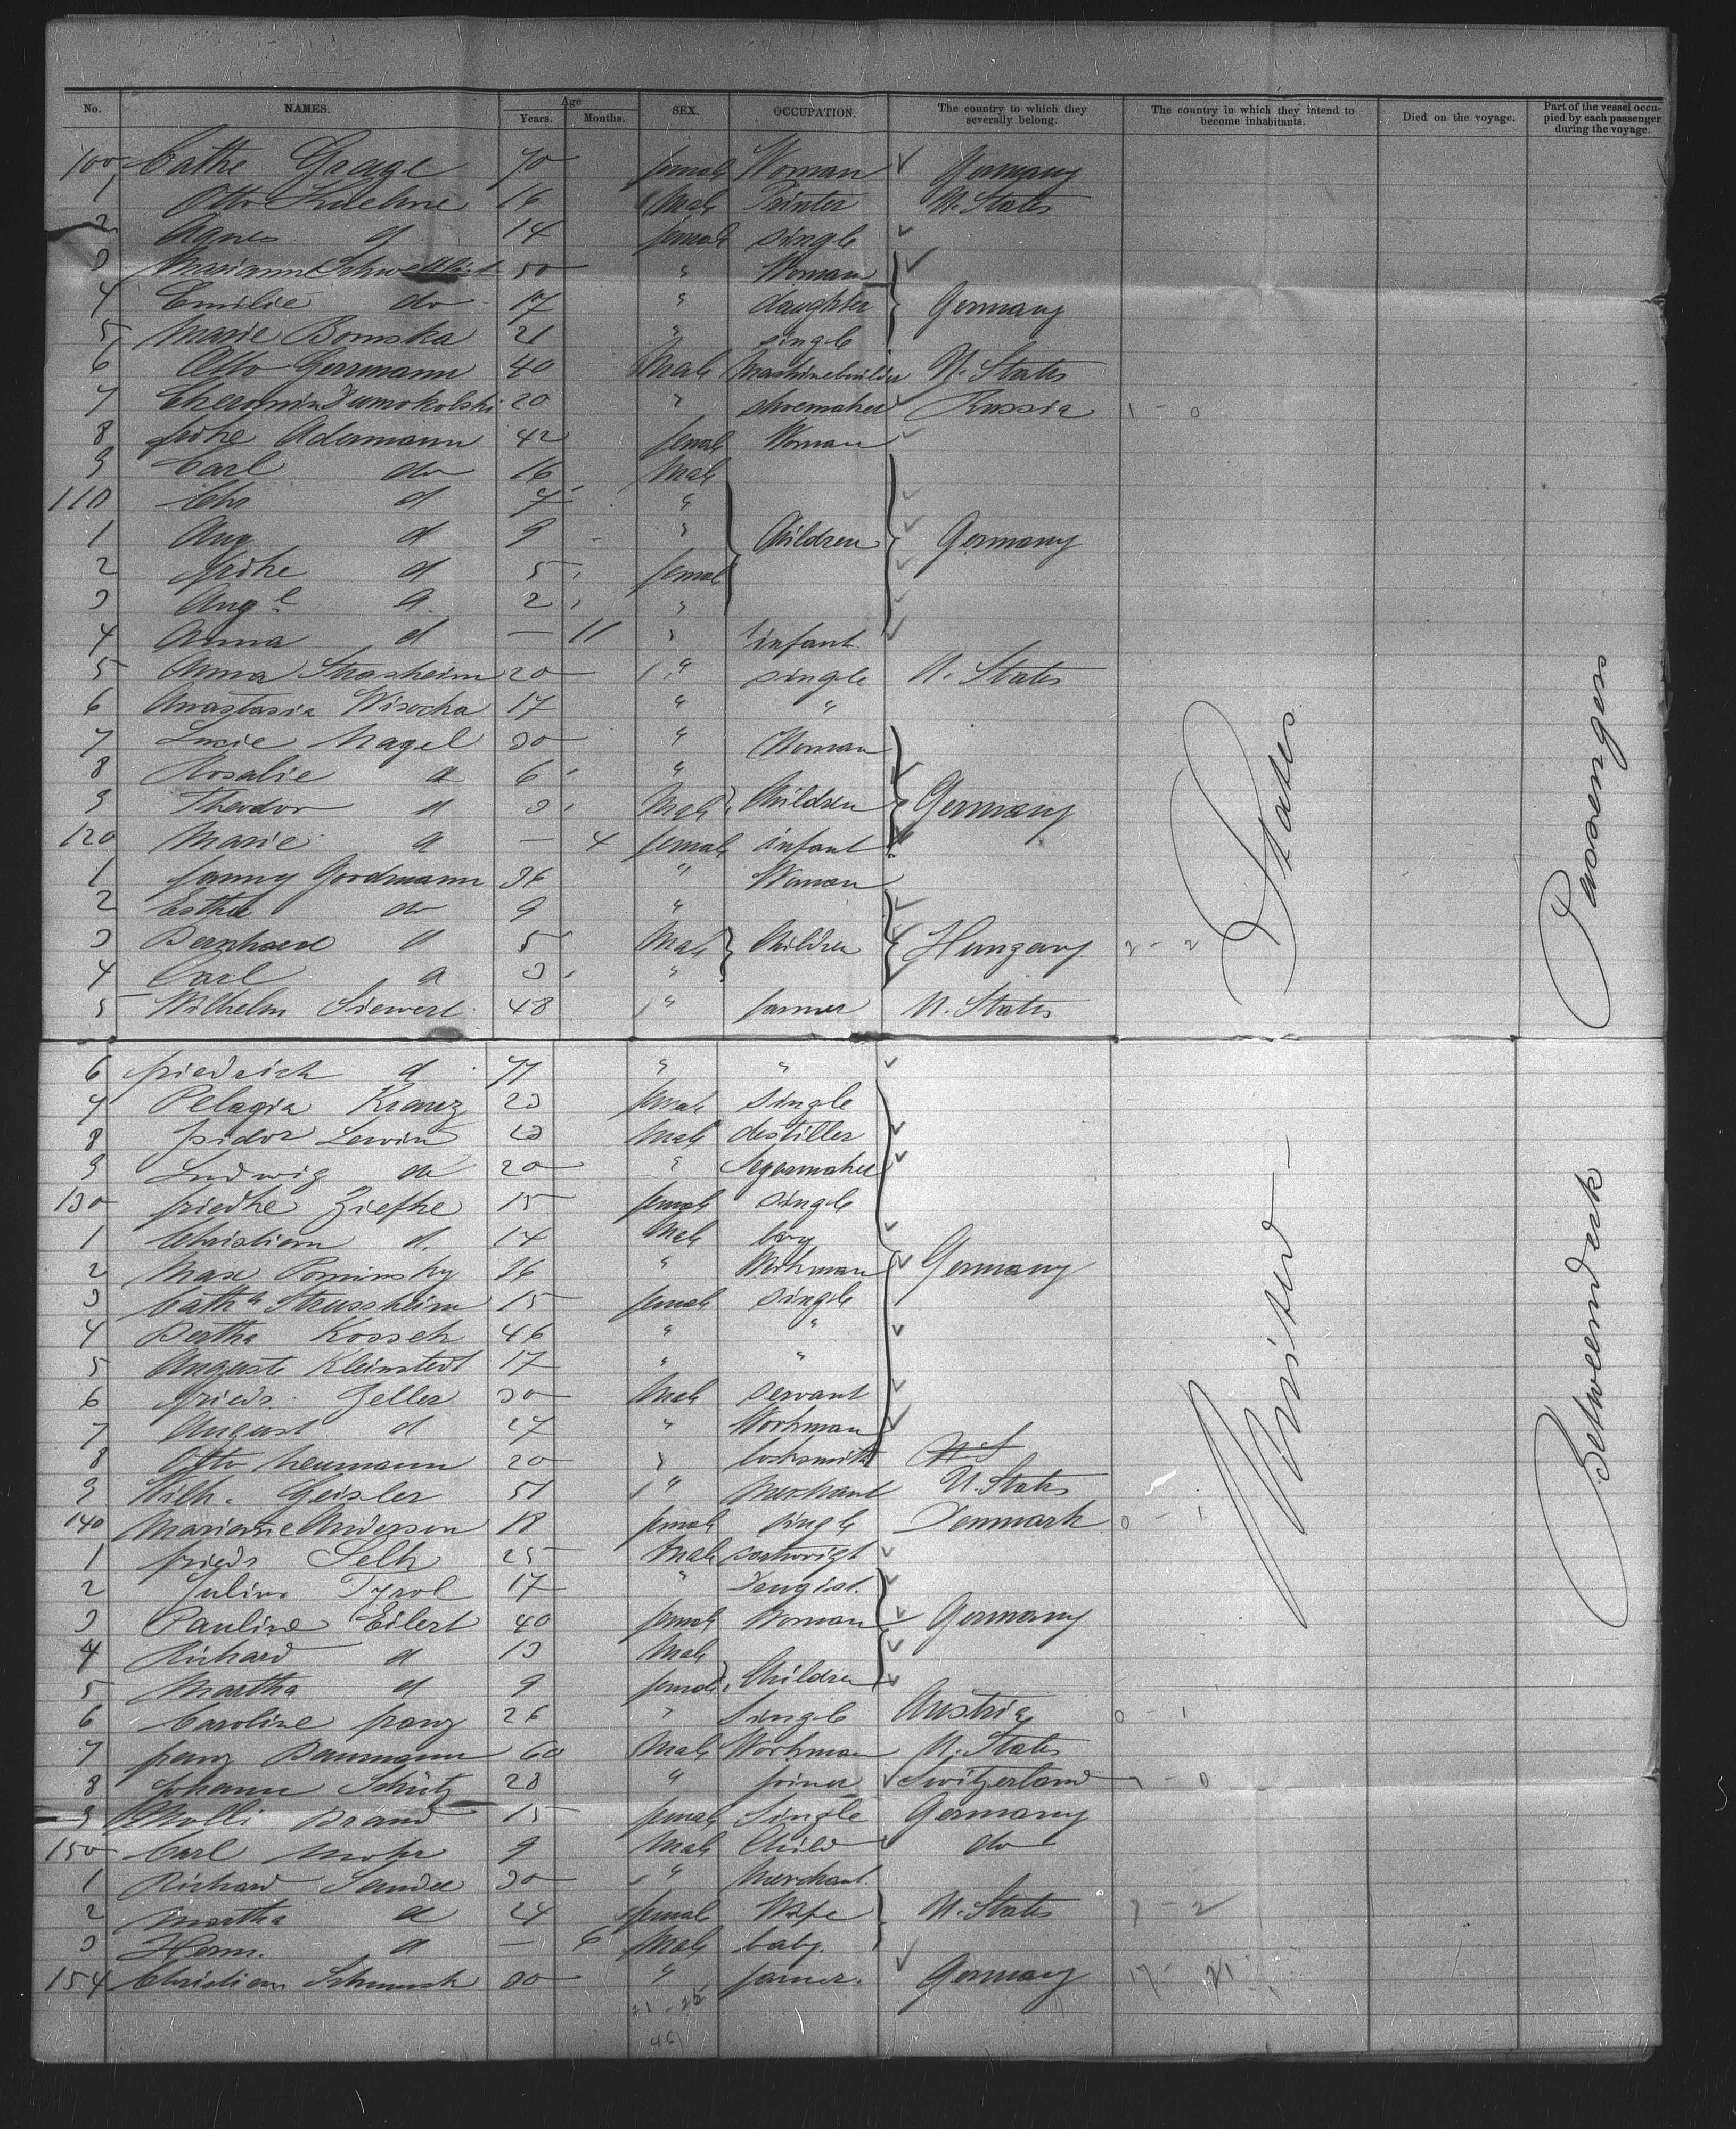 No. NAMES. Age Years. Months. SEX. OCCUPATION. The country to which they severally belong. The country in which they intend to become inhabitants. Died on the voyage. Part of the vessel occupied by each passenger during the voyage.
100 Cathe Grage 70 female Woman Germany
1 Otto Kuehne 16 Male Printer U. States
2 Agnes d 14 female single
3 Marianne 50 " Woman
4 Emilie do 17 " daughter Germany
5 Marie Bomska 21 " single
6 Otto Germann 40 Male Mashinebuilder U. States
7 20 " shoemaker Russia 1 - 0
8 Fridke Adermann 42 female Woman
9 Carl do 16 Male
110 Chr d 7 "
1 Aug d 9 " Children Germany
2 Fridke d 5 female
3 Aug.e d 2 "
4 Anna d — 11 " infant
5 Anna Strasheim 20 " single U. States
6 Anastasia Wisocka 17 " "
7 Lucie Nagel 30 " Woman
8 Rosalie d 6 "
9 Theodor d 3 Male Children Germany
120 Marie d — 4 female infant
1 Fanny Goodmann 36 " Woman
2 Esther do 9 "
3 Bernhard d 5 Male Children Hungary 2 - 2
4 Carl d 3 "
5 Wilhelm Siewert 48 " farmer U. States
6 Friedrich d 71 " "
7 Pelagia Kranz 23 female single
8 Isidor Lewin 23 Male destiller
9 Ludwig do 20 " Segarmaker
130 Friedke Ziefke 15 female single
1 Christian d. 14 Male boy
2 Max Pominsky 26 " Workman Germany
3 Cathe Strassheim 15 female single
4 Bertha Kosseh 46 " "
5 Auguste Kleinstedt 17 " "
6 Friedr. Zeller 30 Male servant
7 August d 27 " Workman
8 Otto Neumann 20 " locksmith U S
9 Wilh. Geisler 51 " Merchant U. States
140 Marianne Anderson 18 female single Denmark 0 - 1
1 Friedr Selk 25 Male cartwrigt
2 Julius Tyrol 17 " Drugist.
3 Pauline Eilert 40 female Woman Germany
4 Richard d 13 Male
5 Martha d 9 female Children
6 Caroline Franz 26 " Single Austria 0 - 1
7 Franz Baumann 60 Male Workman U. States
8 Johann Schütz 28 " joiner Switzerland 1 - 0
9 Molli Brand 15 female Single Germany
150 Carl Mohr 9 Male Child do
1 Richard Sander 30 " Merchant.
2 Martha d 24 female Wife U. States 7 - 2
3 Herm. d — 6 Male baby.
154 Christian Schunack 30 " farmer. Germany 17 - 21
21 - 25
46
United States
Betweendeck Passengers